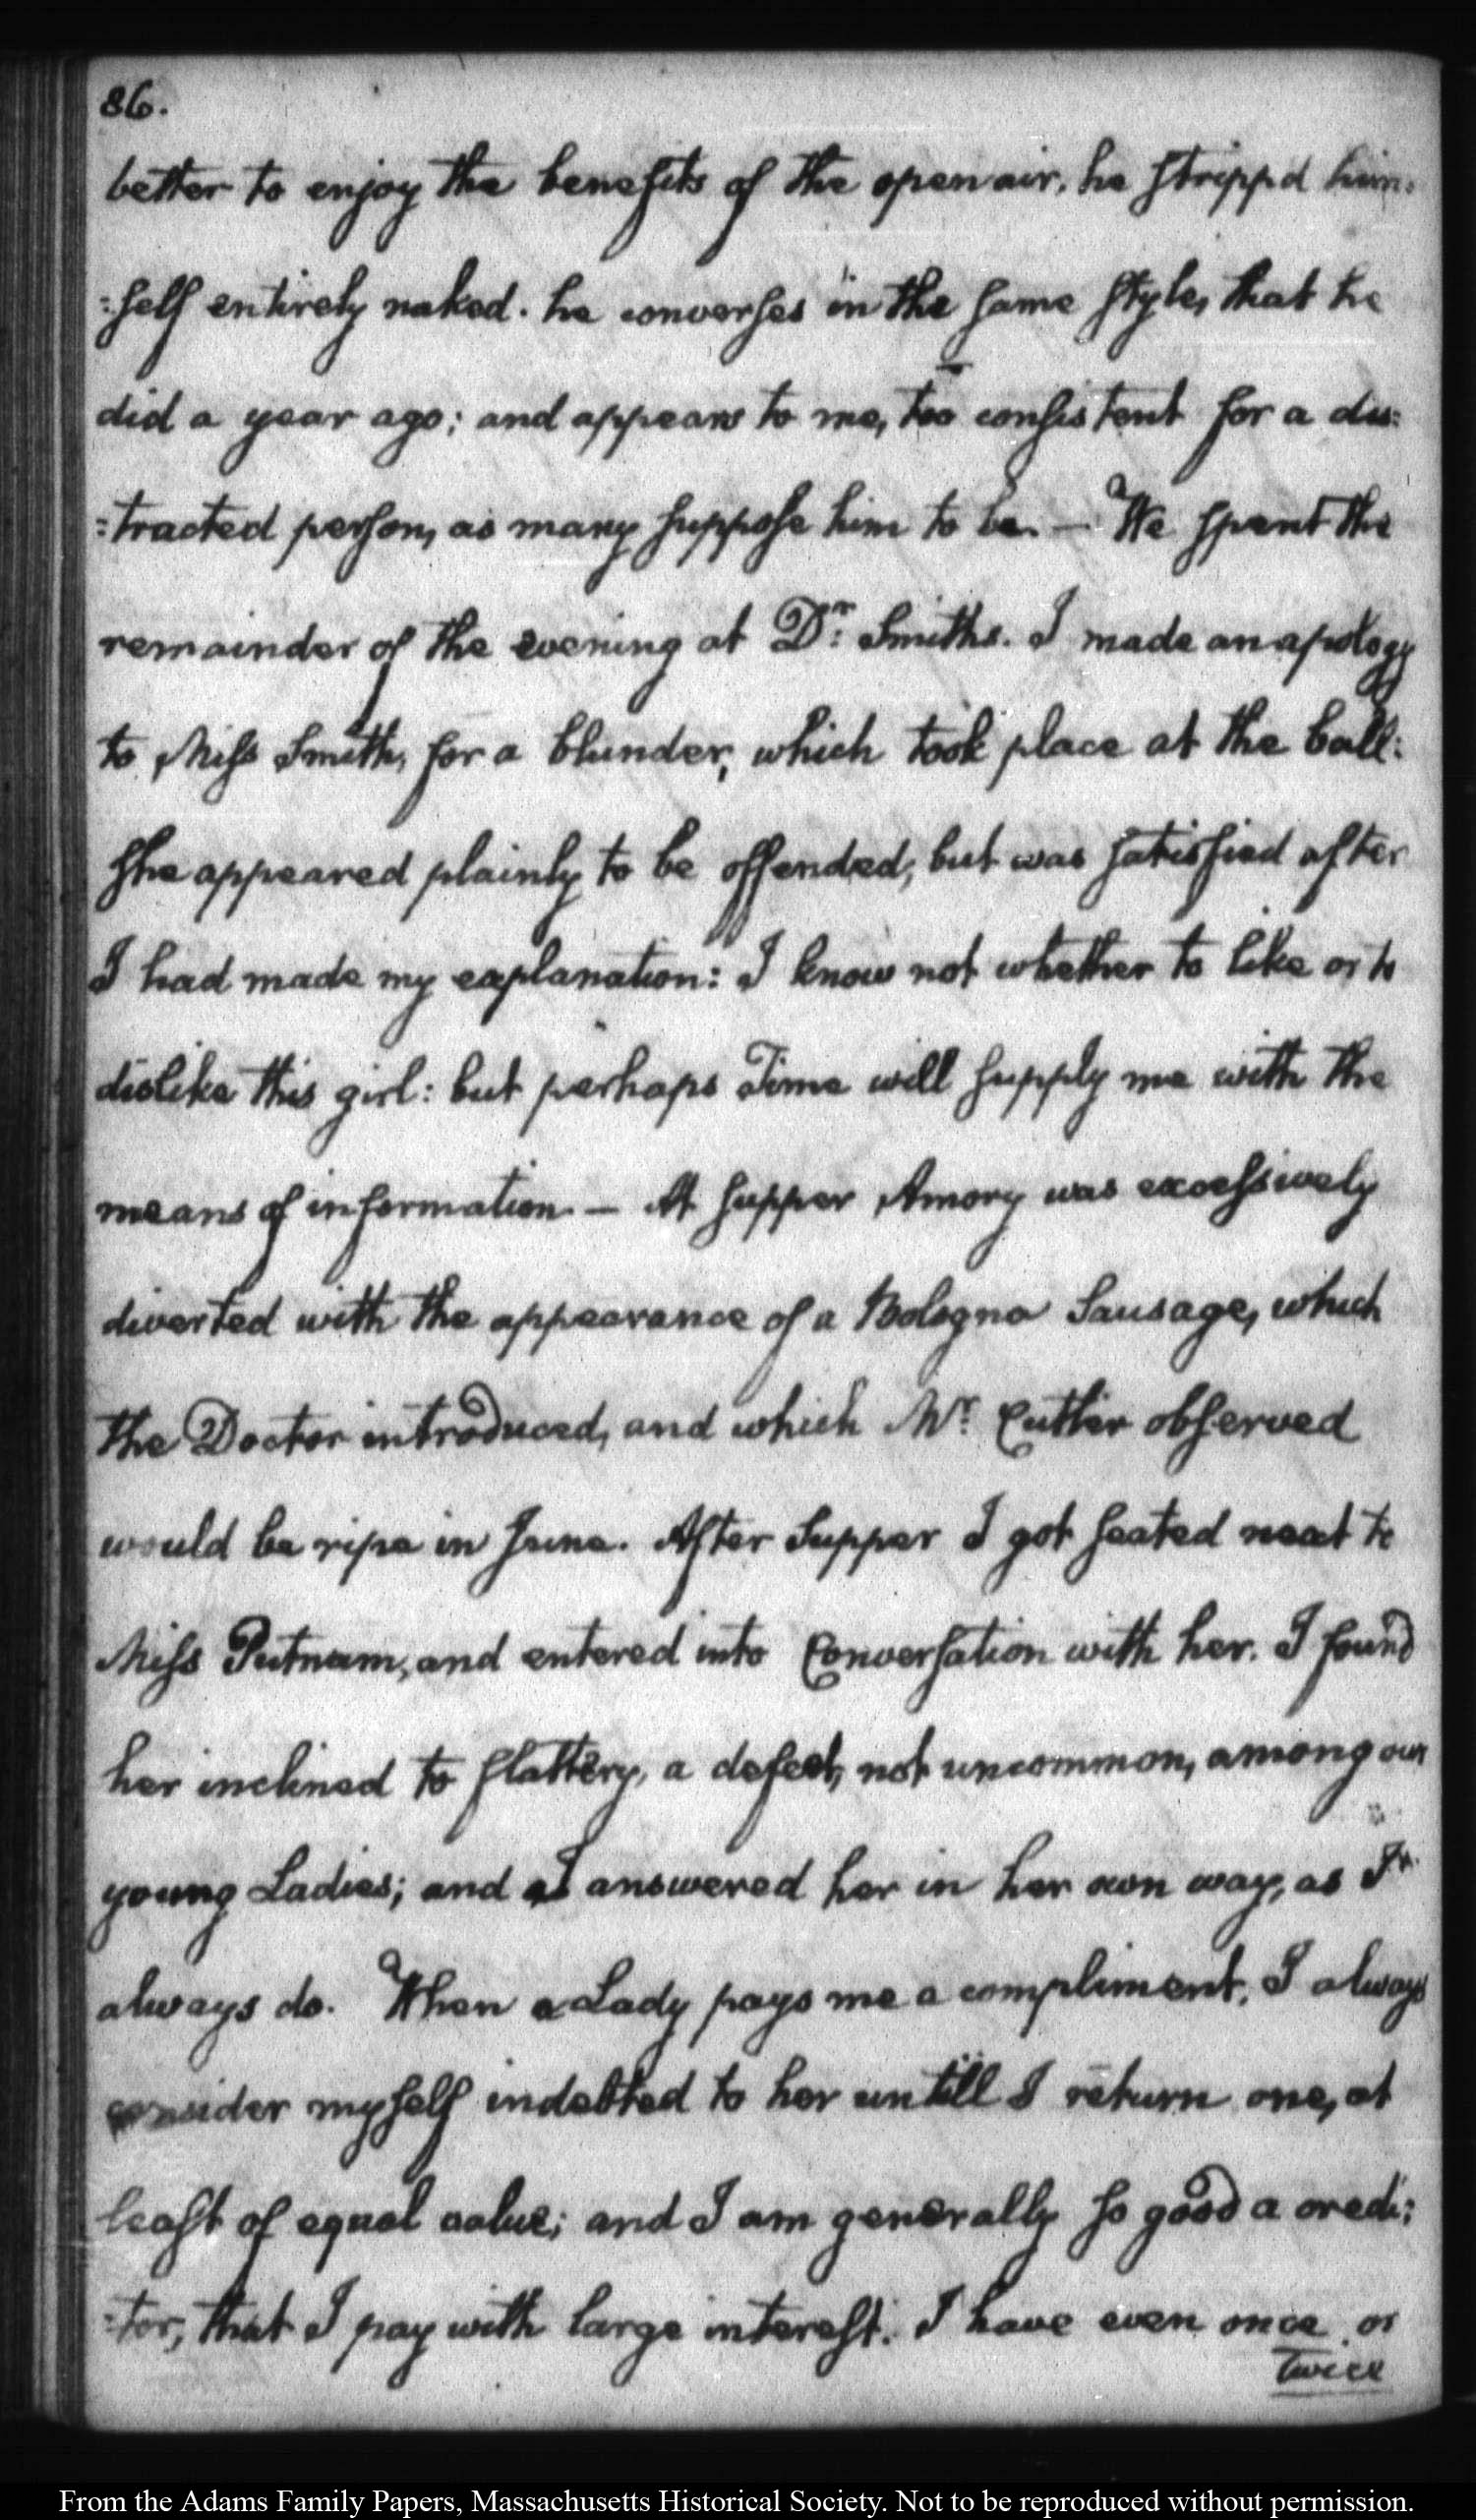 86.
better to enjoy the benefits of the open air, he stripp'd him:
:self entirely naked. he converses in the same style, that he
did a year ago; and appears to me, too consistent for a dis:
:tracted person, as many suppose him to be. — We spent the
remainder of the evening at Dr. Smiths. I made an apology
to Miss Smith, for a blunder, which took place at the ball:
she appeared plainly to be offended, but was satisfied after
I had made my explanation: I know not whether to like or to
dislike this girl: but perhaps Time will supply me with the
means of information. — At supper Amory was excessively
diverted with the appearance of a Bologna Sausage, which
the Doctor introduced, and which Mr. Cutler observed
would be ripe in June. After Supper I got seated next to
Miss Putnam, and entered into Conversation with her. I found
her inclined to flattery, a defect, not uncommon, among our
young Ladies; and I answered her in her own way, as I
always do. When a Lady pays me a compliment, I always
consider myself indebted to her untill I return one, at
least of equal value; and I am generally so good a credi:
:tor, that I pay with large interest. I have even once or
twice
From the Adams Family Papers, Massachusetts Historical Society. Not to be reproduced without permission.